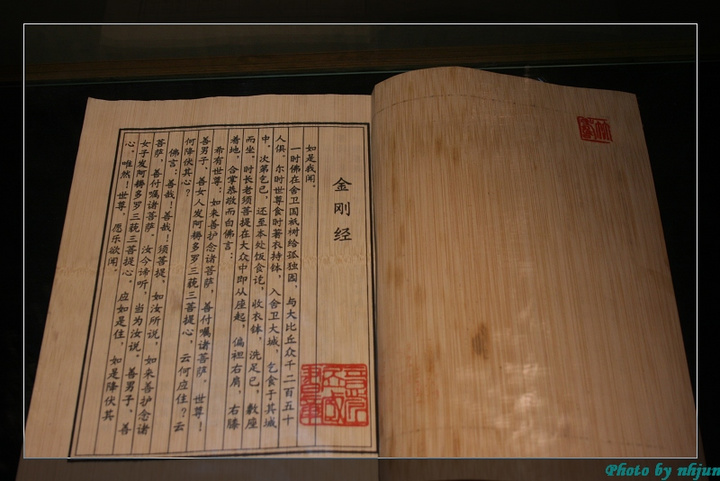 金刚经
如是我闻。
一时佛在舍卫国祇树给孤独园，与大比丘众千二百五十
人俱。尔时世尊食时著衣持钵，入舍卫大城，乞食于其城
中。次第乞已，还至本处饭食讫，收衣钵，洗足已，敷座
而坐。时长老须菩提在大众中即从座起，偏袒右肩，右膝
着地，合掌恭敬而白佛言：
希有世尊：如来善护念诸菩萨，善付嘱诸菩萨。世尊！
善男子、善女人发阿耨多罗三藐三菩提心，云何应住？云
何降伏其心？
佛言：善哉！善哉！须菩提，如汝所说，如来善护念诸
菩萨，善付嘱诸菩萨。汝今谛听，当为汝说。善男子、善
女子发阿耨多罗三藐三菩提心，应如是住，如是降伏其
心。唯然！世尊，愿乐欲闻。
Photo by nhjun